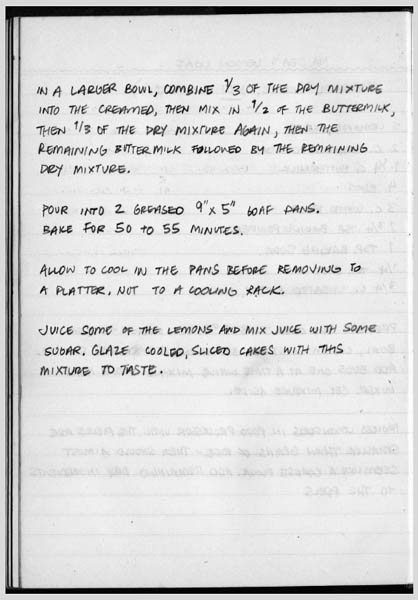 IN A LARGER BOWL, COMBINE 1/3 OF THE DRY MIXTURE
INTO THE CREAMED, THEN MIX IN 1/2 OF THE BUTTERMILK,
THEN 1/3 OF THE DRY MIXTURE AGAIN, THEN THE
REMAINING BUTTERMILK FOLLOWED BY THE REMAINING
DRY MIXTURE.
POUR INTO 2 GREASED 9" X 5" LOAF PANS.
BAKE FOR 50 TO 55 MINUTES.
ALLOW TO COOL IN THE PANS BEFORE REMOVING TO
A PLATTER, NOT TO A COOLING RACK.
JUICE SOME OF THE LEMONS AND MIX JUICE WITH SOME
SUGAR. GLAZE COOLED, SLICED CAKES WITH THIS
MIXTURE TO TASTE.